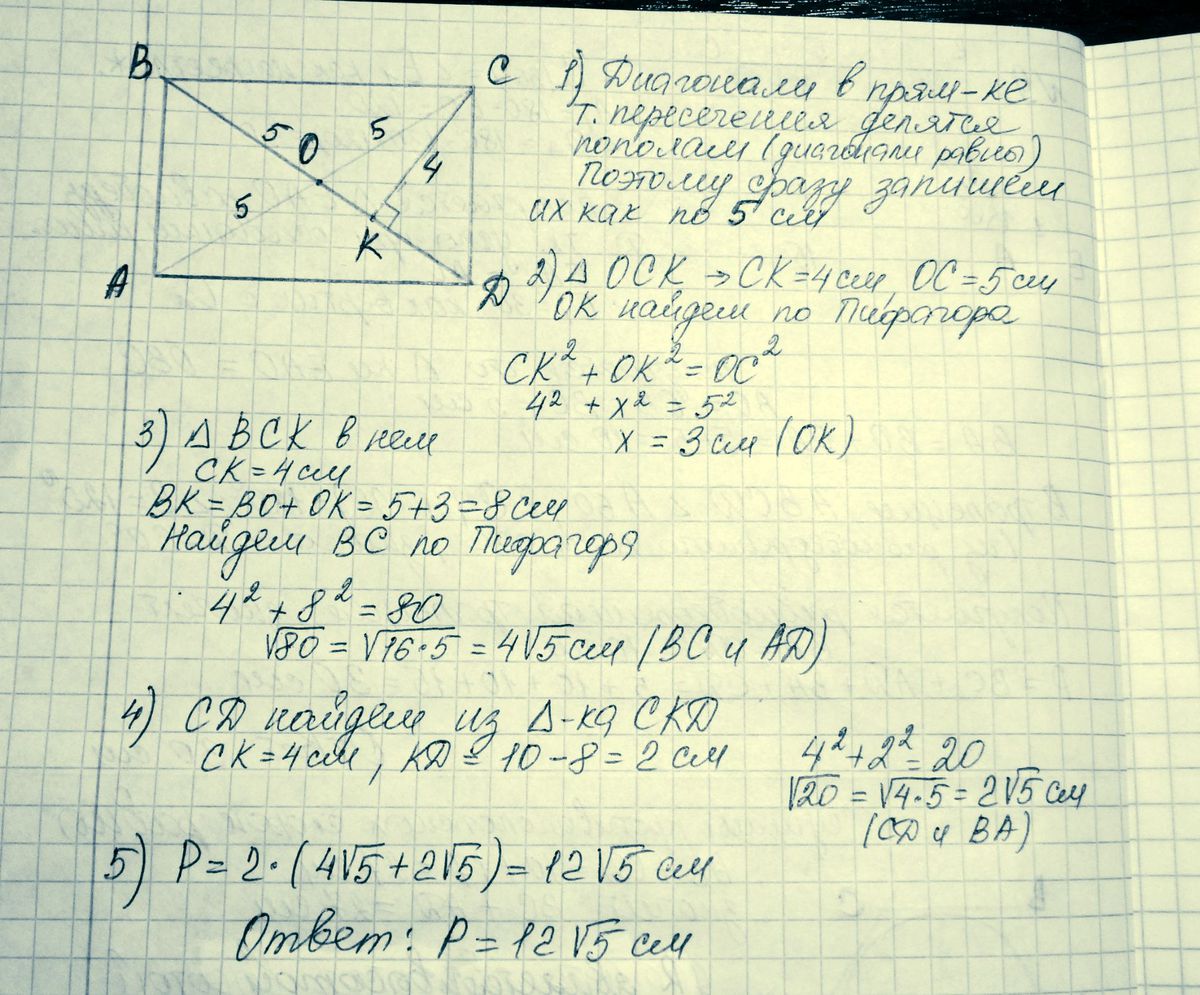 B
C
5
O
5
4
5
K
A
D
1) Диагонали в прям-ке
т. пересечения делятся
пополам (диагонали равны)
Поэтому сразу запишем
их как по 5 см
2) Δ OCK → CK = 4 см, OC = 5 см
OK найдем по Пифагора
CK² + OK² = OC²
4² + x² = 5²
x = 3 см (OK)
3) Δ BCK в нем
CK = 4 см
BK = BO + OK = 5 + 3 = 8 см
Найдем BC по Пифагора
4² + 8² = 80
√80 = √16·5 = 4√5 см (BC и AD)
4) CD найдем из Δ-ка CKD
CK = 4 см, KD = 10 − 8 = 2 см
4² + 2² = 20
√20 = √4·5 = 2√5 см
(CD и BA)
5) P = 2·(4√5 + 2√5) = 12√5 см
Ответ: P = 12√5 см